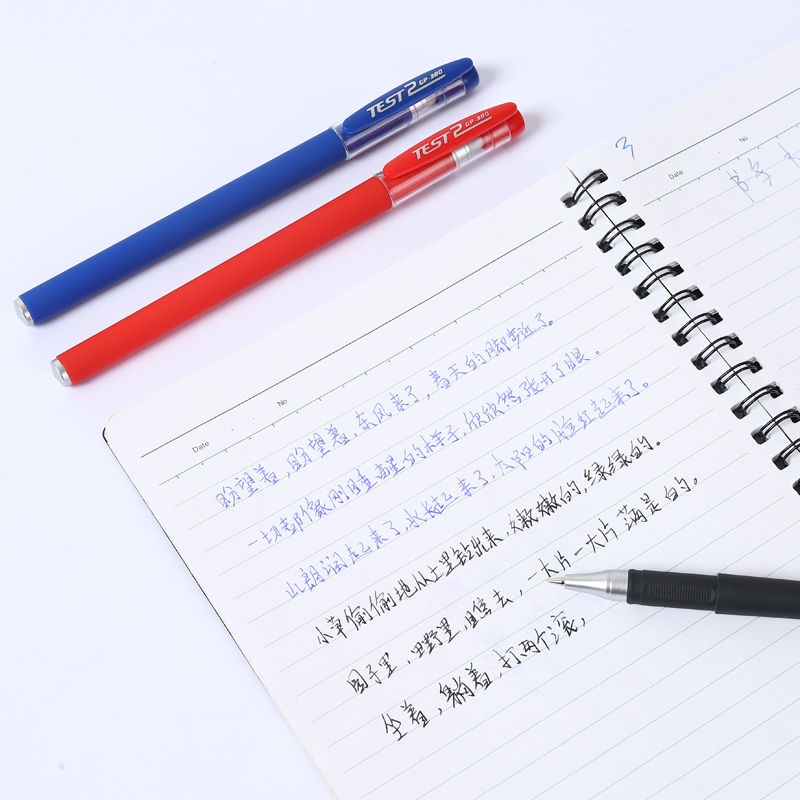 TEST 2 GP-380
TEST 2 GP-380
3
No
Date
No
Date
盼望着，盼望着，东风来了，春天的脚步近了。
一切都像刚睡醒的样子，欣欣然张开了眼。
山朗润起来了，水长起来了，太阳的脸红起来了。
小草偷偷地从土里钻出来，嫩嫩的，绿绿的。
园子里，田野里，瞧去，一大片一大片满是的。
坐着，躺着，打两个滚，